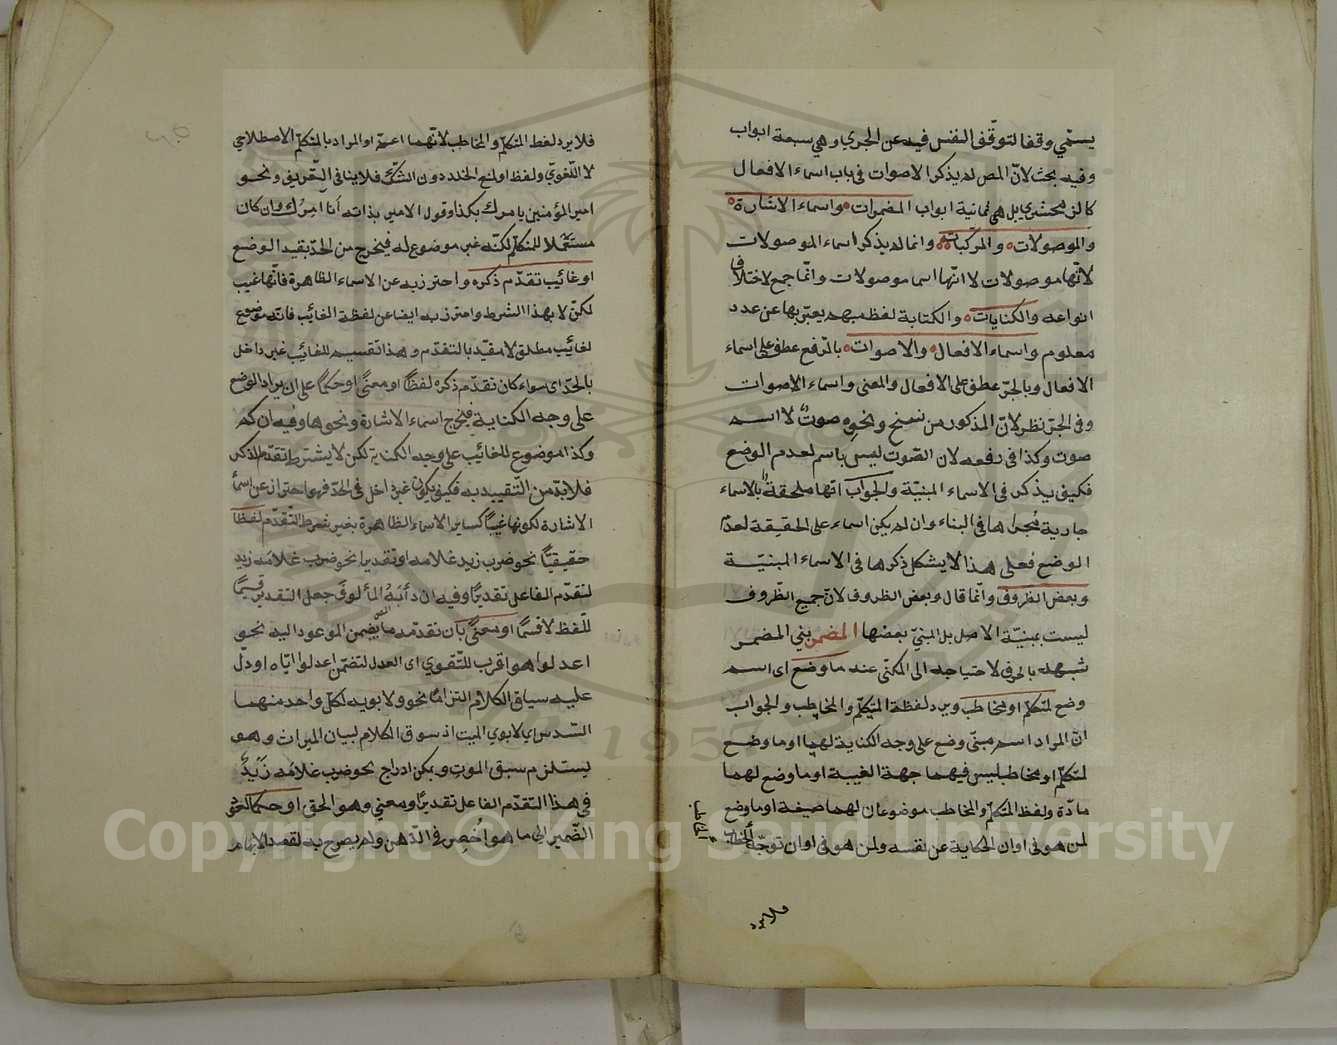 يسمّي وقفا لتوقّف النفس فيه عن الجري وهي سبعة ابواب
وفيه بحث لانّ المص لم يذكر الاصوات في باب اسماء الافعال
كالزمخشري بل هي ثمانية ابواب المضمرات واسماء الاشارة
والموصولات والمركبات وانما لم يذكر اسماء الموصولات
لانّها موصولات لا انّها اسما موصولات وانّما جمع لاختلاف
انواعه والكنايات والكناية لفظ مبهم يعبّر بها عن عدد
معلوم واسماء الافعال والاصوات بالرفع عطف على اسماء
الافعال وبالجرّ عطف على الافعال والمعنى واسماء الاصوات
وفي الجرّ نظر لانّ المذكور من نخ ونحوه صوت لا اسم
صوت وكذا في رفعه لان الصّوت ليس باسم لعدم الوضع
فكيف يذكر في الاسماء المبنيّة والجواب انّها ملحقة بالاسماء
جارية مجراها في البناء وان لم يكن اسماء على الحقيقة لعدم
الوضع فعلى هذا لا يشكل ذكرها في الاسماء المبنيّة
وبعض الظروف وانّما قال وبعض الظروف لانّ جميع الظّروف
ليست بمبنيّة الاصل بل المبنيّ بعضها المضمر بني المضمر
شبهه بالحرف لاحتياجه الى المكنّى عنه ما وضع اى اسم
وضع لمتكلم او مخاطب ويرد لفظة المتكلّم والمخاطب والجواب
انّ المراد اسم مبنى وضع على وجه الكناية لهما او ما وضع
لمتكلّم او مخاطب ليس فيهما جهة الغيبة او ما وضع لهما
مادّة ولفظ المتكلّم والمخاطب موضوعان لهما صيغة او ما وضع
لمن هو في اوان الحكاية عن نفسه ولمن هو في اوان توجّه الخطاب
فلا يرد
فلا يرد لفظ المتكلّم والمخاطب لانّهما اعمّ او المراد بالمتكلّم الاصطلاحي
لا اللّغويّ ولفظ او لمنع الخلو دون الشكّ فلا ينافي التّعريف ونحو
امير المؤمنين يامرك بكذا وقول الامير بذاته أنا آمرك وان كان
مستعملا للمتكلّم لكنّه غير موضوع له فيخرج من الحدّ بقيد الوضع
او غائب تقدّم ذكره واحترز به عن الاسماء الظاهرة فانّها غيب
لكن لا بهذا الشرط واحترز به ايضا عن لفظة الغائب فانّه موضوع
لغائب مطلق لا مقيّد بالتقدّم وهذا تقسيم للغائب غير داخل
بالحدّ اى سواء كان تقدّم ذكره لفظاً او معنىً او حكماً على ان يراد الوضع
على وجه الكناية فيخرج اسماء الاشارة ونحوها وفيه ان كم
وكذا موضوع للغائب على وجه الكناية لكن لا يشترط تقدّم الذكر
فلابدّ من التّقييد به فكيف يكون غير داخل في الحدّ فهو احتراز عن اسماء
الاشارة لكونها غيبا كساير الاسماء الظاهرة بغير شرط التّقدّم لفظا
حقيقيّاً نحو ضرب زيد غلامه او تقديرا نحو ضرب غلامه زيد
لتقدّم الفاعل تقديرًا وفيه ان دأبه المألوف جعل التقدير قسيمًا
للّفظ لا قسمًا او معنىً بان تقدّمه ما يتضمن الموعود اليه نحو
اعدلوا هو اقرب للتّقوي اى العدل لتضمّن اعدلوا ايّاه او دلّ
عليه سياق الكلام التزاما نحو ولابويه لكلّ واحد منهما
السّدس اي لابوي الميت اذ سوق الكلام لبيان الميراث وهو
يستلزم سبق الموت ويمكن ادراج نحو ضرب غلامه زيدٌ
في هذا التقدّم الفاعل تقديرًا ومعنى وهو الحق او حكما لعود
الضّمير الى ما هو احضر في الذّهن ولم يصرح به لقصد الابهام